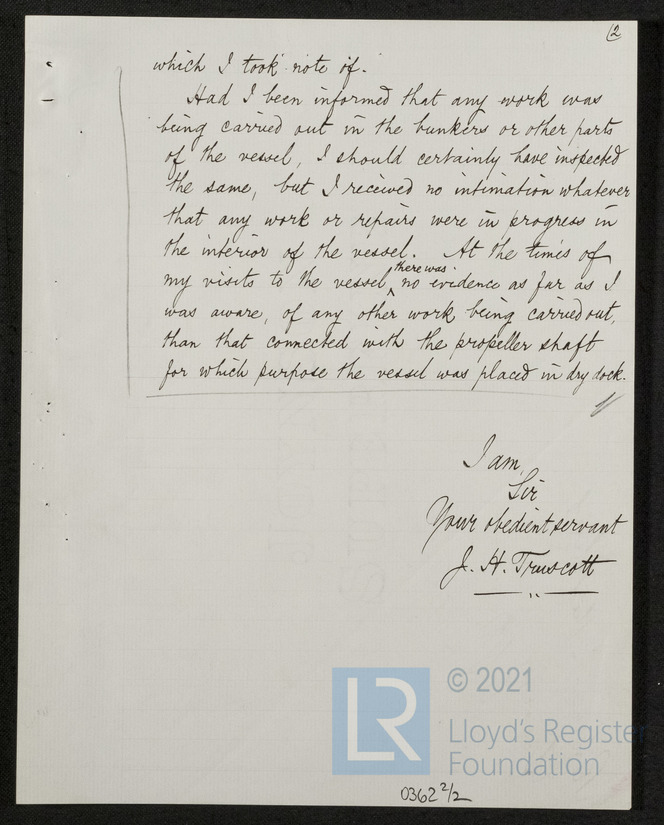 (2
which I took note of.
Had I been informed that any work was
being carried out in the bunkers or other parts
of the vessel, I should certainly have inspected
the same, but I received no intimation whatever
that any work or repairs were in progress in
the interior of the vessel. At the times of
my visits to the vessel, there was no evidence as far as I
was aware, of any other work being carried out,
than that connected with the propeller shaft
for which purpose the vessel was placed in dry dock.
I am,
Sir
Your obedient servant
J. H. Truscott
LR
© 2021
Lloyd's Register
Foundation
0362 2/2